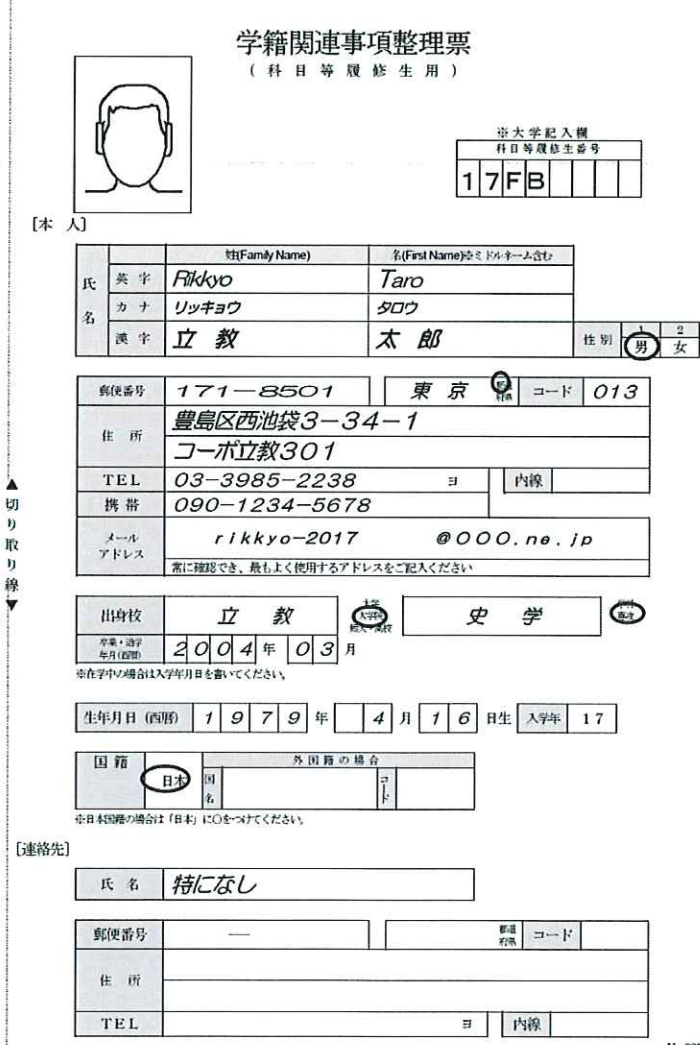 学籍関連事項整理票
(科目等履修生用)
※大学記入欄
科目等履修生番号
17FB
[本 人]
姓(Family Name) 名(First Name)※ミドルネーム含む
氏名
英字 Rikkyo Taro
カナ リッキョウ タロウ
漢字 立教 太郎 性別 1 男 2 女
郵便番号 171-8501 東京 都道府県 コード 013
住所 豊島区西池袋3-34-1
コーポ立教301
TEL 03-3985-2238 ヨ 内線
携帯 090-1234-5678
メールアドレス rikkyo-2017 @OOO.ne.jp
常に確認でき、最もよく使用するアドレスをご記入ください
▲切り取り線▼
出身校 立教 大学 大学院 短大・高校 史学 専攻
卒業・退学年月(西暦) 2004年 03月
※在学中の場合は入学年月日を書いてください。
生年月日(西暦) 1979年 4月16日生 入学年 17
国籍 日本 外国籍の場合
国名 コード
※日本国籍の場合は「日本」に○をつけてください。
[連絡先]
氏名 特になし
郵便番号 — 都道府県 コード
住所
TEL ヨ 内線